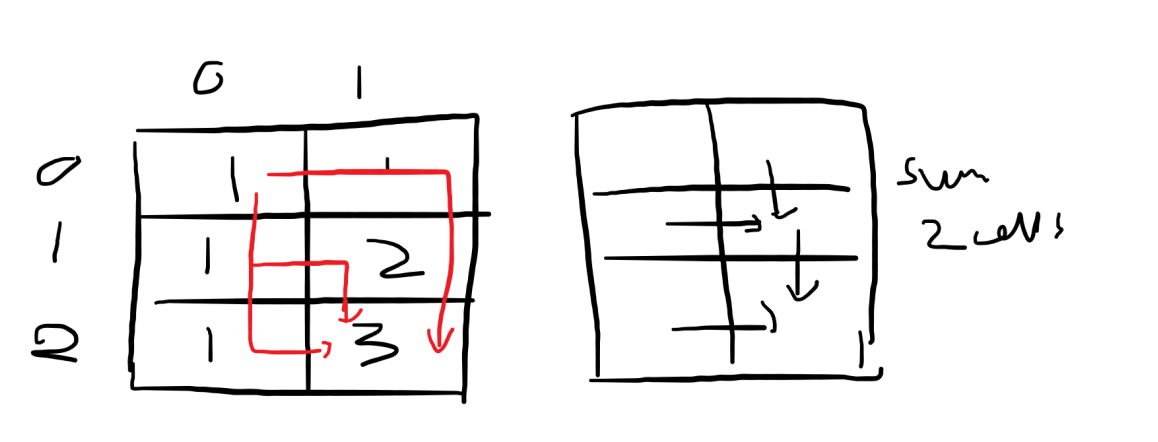 0 1
0 1 1
1 1 2
2 1 3
sum
2 cells